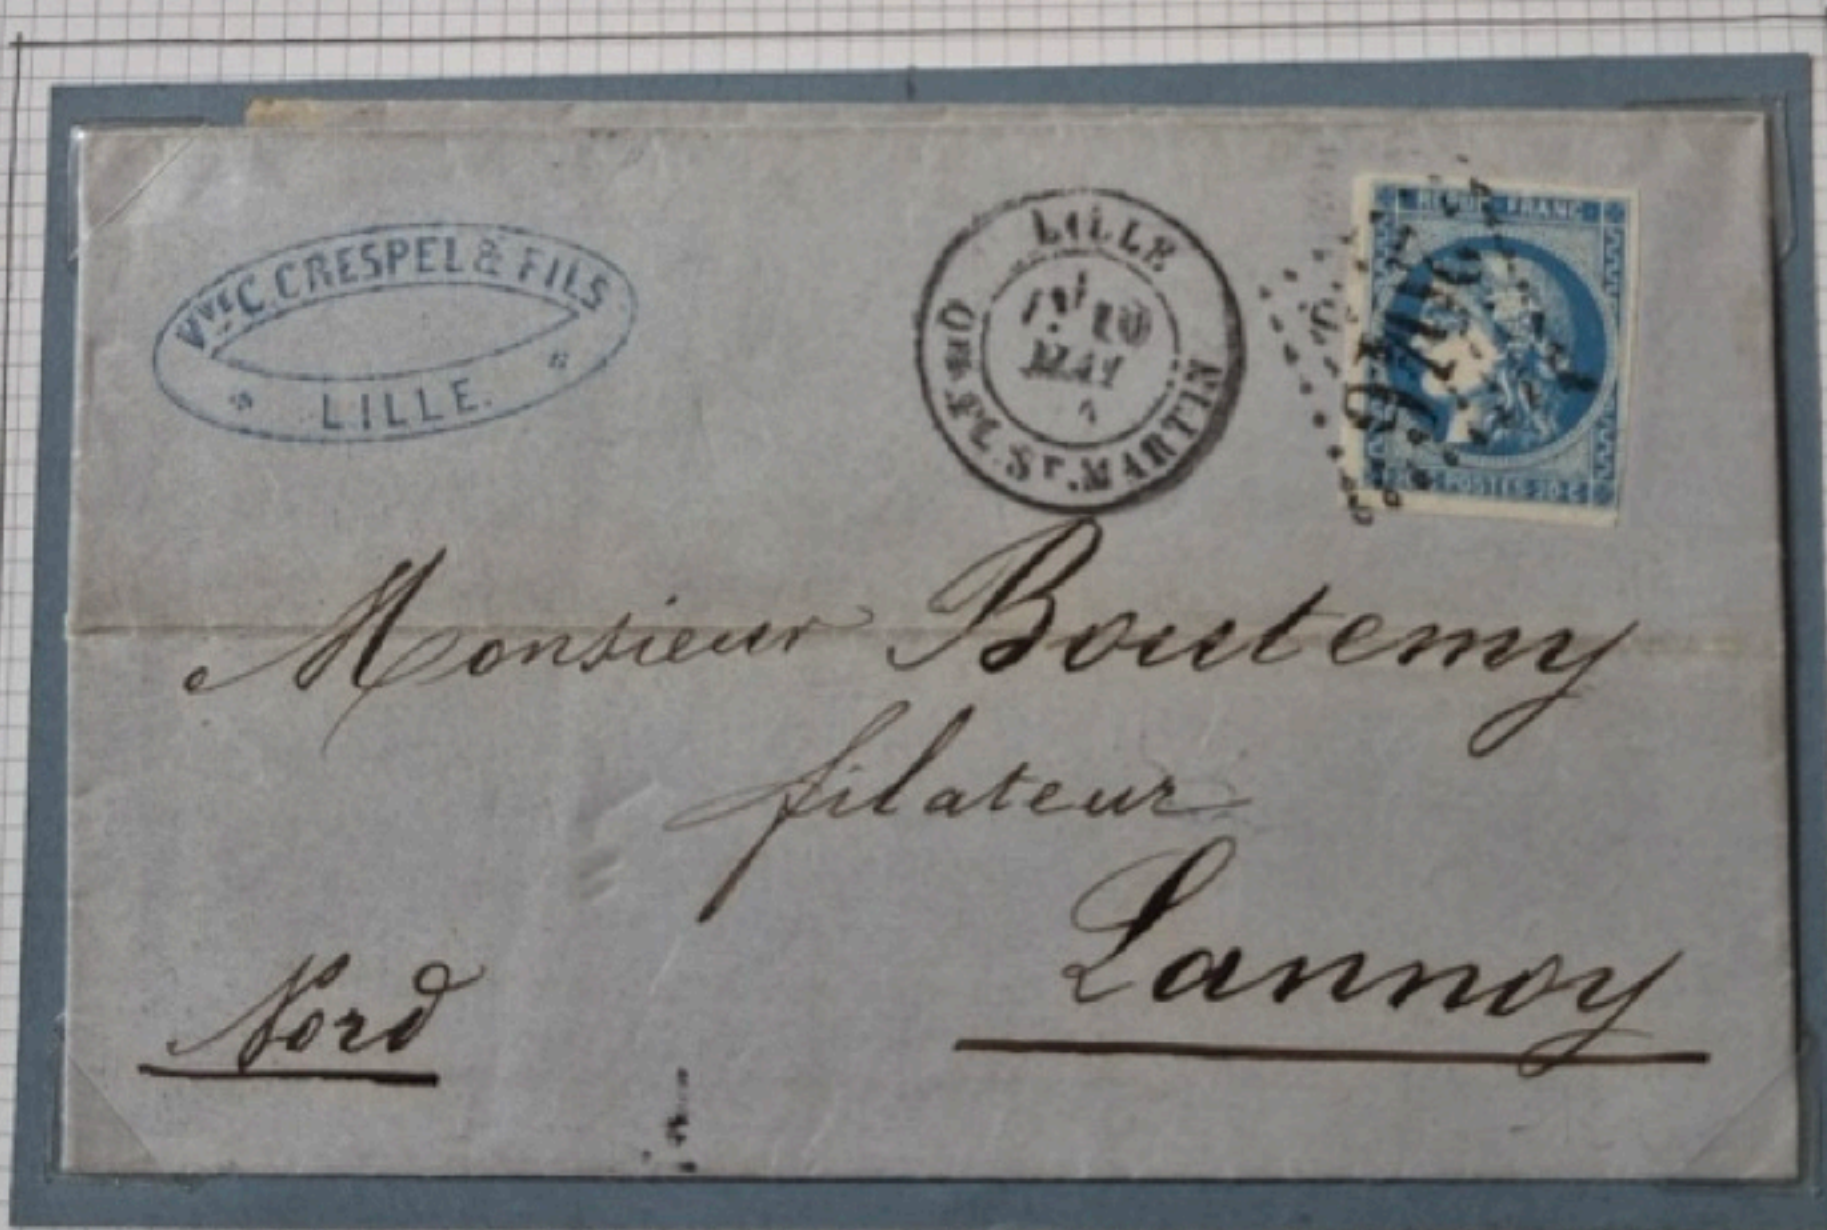 Vve C. CRESPEL & FILS
LILLE.
LILLE
10
MAI
QER ST. MARTIN
REPUB. FRANC
POSTES 20 C
Monsieur Boutemy
filateur
Lannoy
Nord